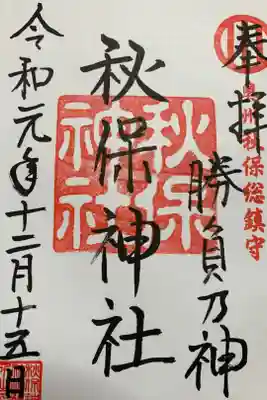 奉拝
奥州秋保総鎮守
勝負乃神
秋保神社
秋保
神社
令和元年十二月十五日